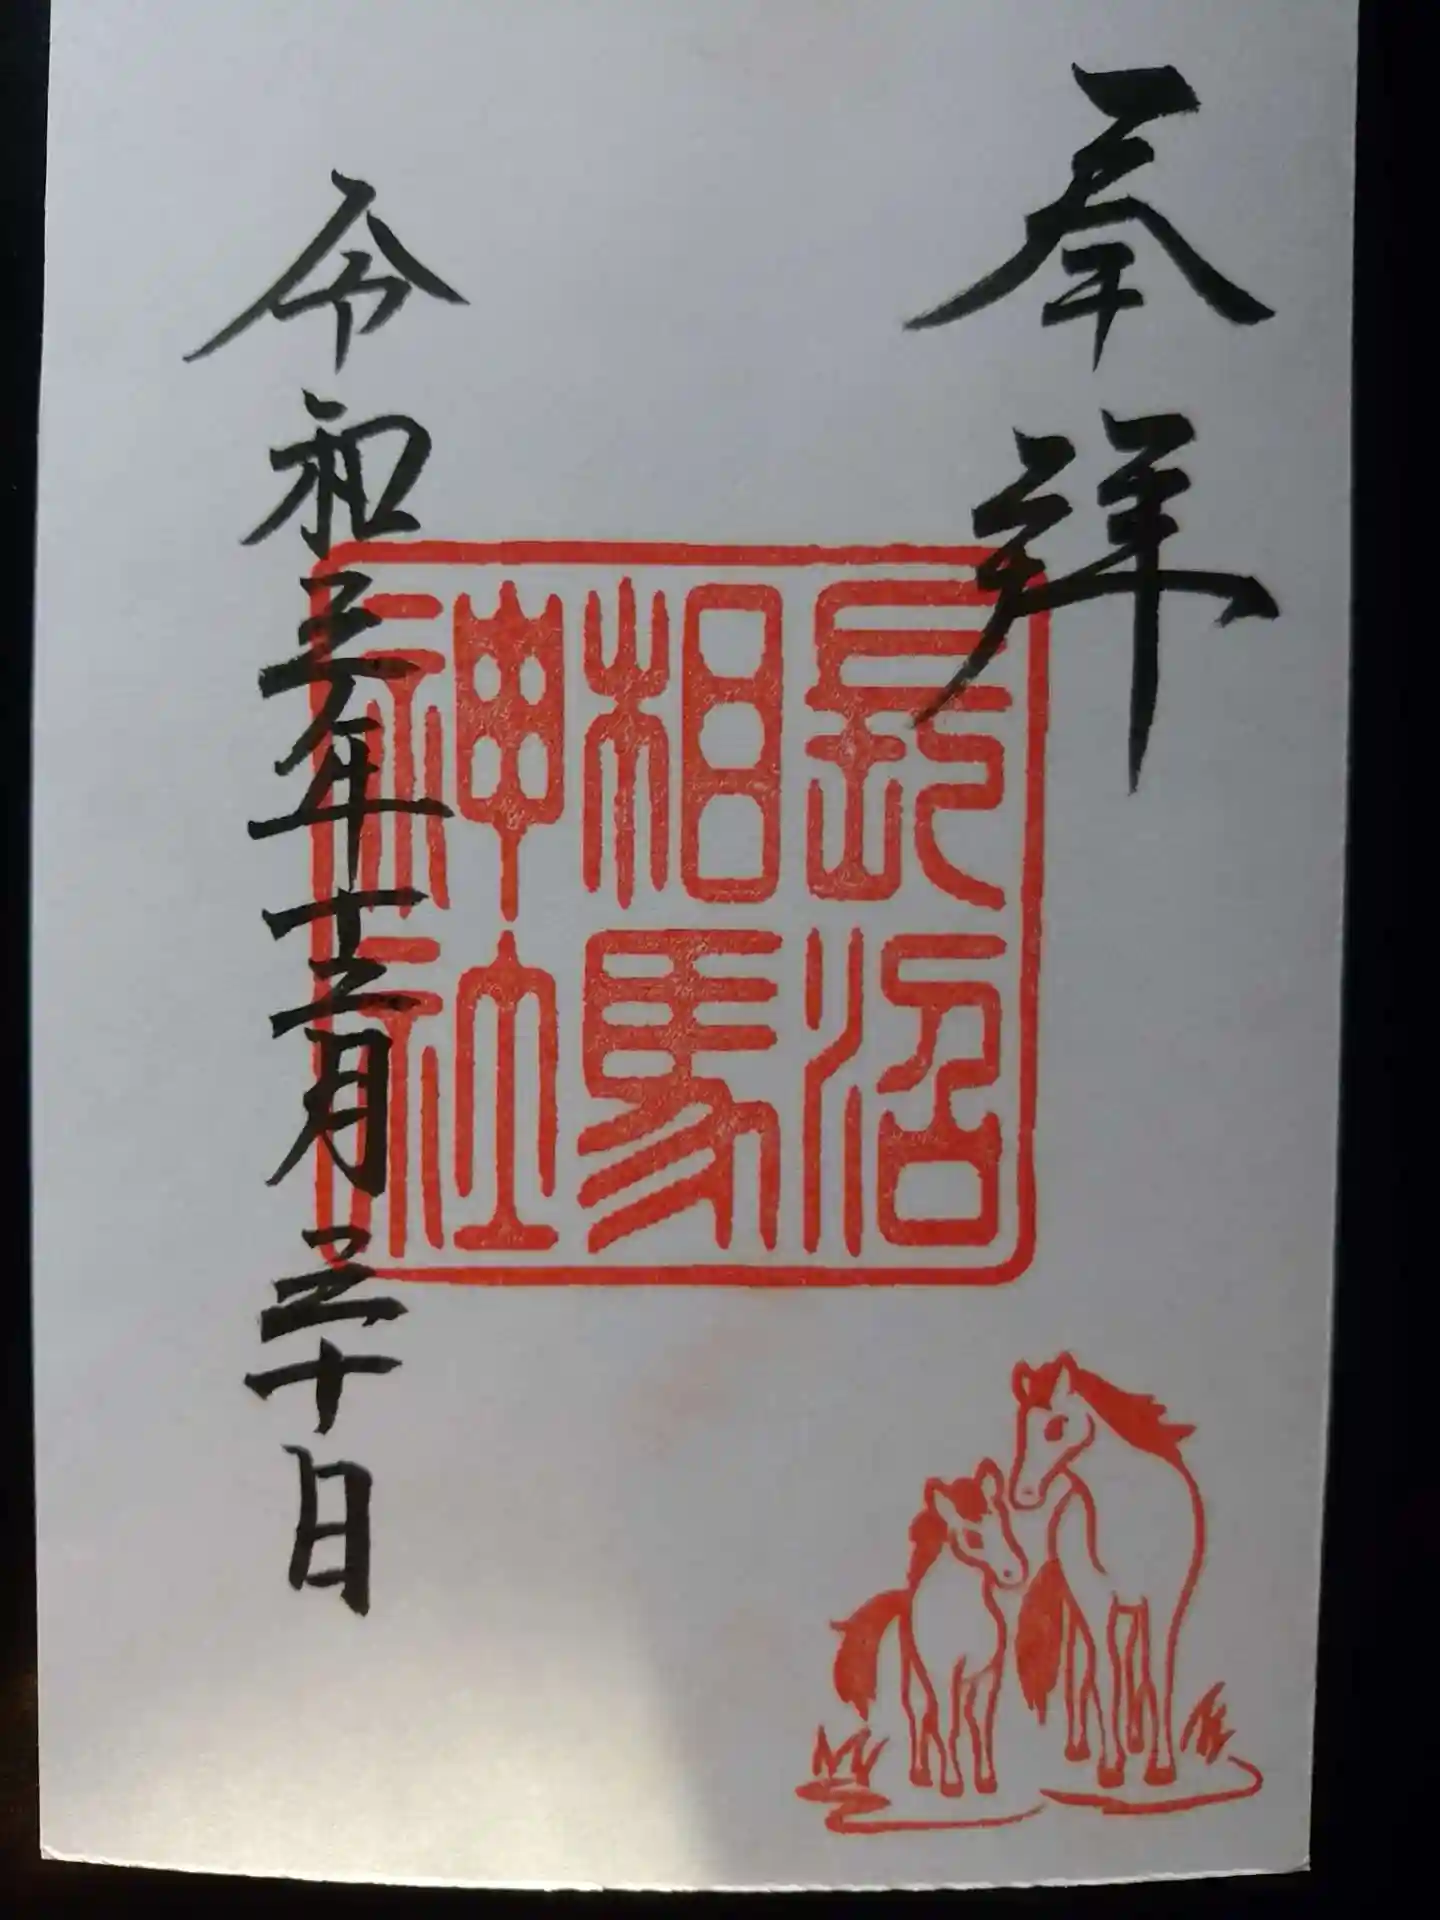 奉拝
長沼
相馬
神社
令和三年十二月三十日